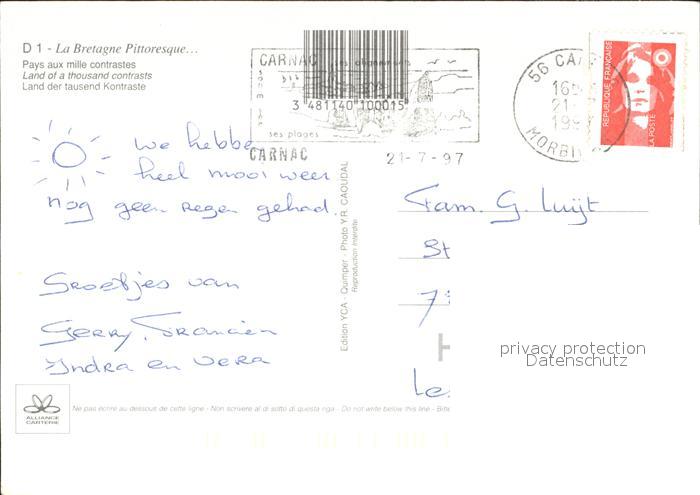 D 1 - La Bretagne Pittoresque...
Pays aux mille contrastes
Land of a thousand contrasts
Land der tausend Kontraste
CARNAC
ses alignements
3 481140 100015
ses plages
CARNAC
21-7-97
56 CA
16
21
199
MORBI
REPUBLIQUE FRANÇAISE
LA POSTE
we hebbe
heel mooi weer
nog geen regen gehad.
Groetjes van
Gerry, Francien
Indra en Vera
Edition YCA - Quimper - Photo Y.R. CAOUDAL
Reproduction interdite
Fam. G. Luijt
St
7
H
Le
privacy protection
Datenschutz
ALLIANCE
CARTERIE
Ne pas écrire au dessous de cette ligne - Non scrivere al di sotto di questa riga - Do not write below this line - Bitte